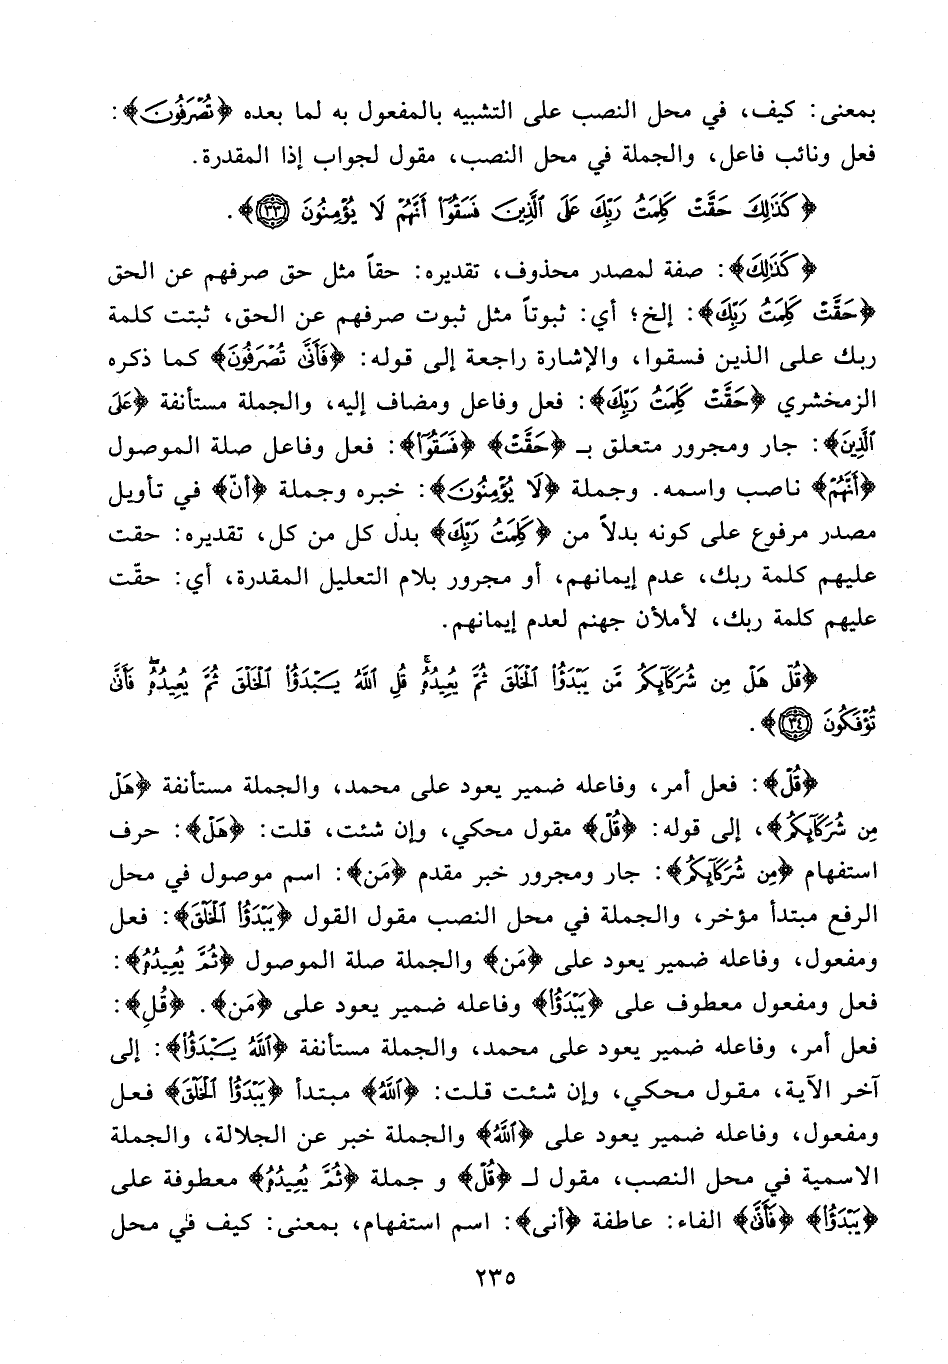 بمعنى: كيف، في محل النصب على التشبيه بالمفعول به لما بعده ﴿تُصْرَفُونَ﴾:
فعل ونائب فاعل، والجملة في محل النصب، مقول لجواب إذا المقدرة.
﴿كَذَٰلِكَ حَقَّتْ كَلِمَتُ رَبِّكَ عَلَى ٱلَّذِينَ فَسَقُوٓا۟ أَنَّهُمْ لَا يُؤْمِنُونَ ٣٣﴾.
﴿كَذَٰلِكَ﴾: صفة لمصدر محذوف، تقديره: حقاً مثل حق صرفهم عن الحق
﴿حَقَّتْ كَلِمَتُ رَبِّكَ﴾: إلخ؛ أي: ثبوتاً مثل ثبوت صرفهم عن الحق، ثبتت كلمة
ربك على الذين فسقوا، والإشارة راجعة إلى قوله: ﴿فَأَنَّىٰ تُصْرَفُونَ﴾ كما ذكره
الزمخشري ﴿حَقَّتْ كَلِمَتُ رَبِّكَ﴾: فعل وفاعل ومضاف إليه، والجملة مستأنفة ﴿عَلَى
ٱلَّذِينَ﴾: جار ومجرور متعلق بـ ﴿حَقَّتْ﴾ ﴿فَسَقُوٓا۟﴾: فعل وفاعل صلة الموصول
﴿أَنَّهُمْ﴾ ناصب واسمه. وجملة ﴿لَا يُؤْمِنُونَ﴾: خبره وجملة ﴿أنّ﴾ في تأويل
مصدر مرفوع على كونه بدلاً من ﴿كَلِمَتُ رَبِّكَ﴾ بدل كل من كل، تقديره: حقت
عليهم كلمة ربك، عدم إيمانهم، أو مجرور بلام التعليل المقدرة، أي: حقّت
عليهم كلمة ربك، لأملأن جهنم لعدم إيمانهم.
﴿قُلْ هَلْ مِن شُرَكَآئِكُم مَّن يَبْدَؤُا۟ ٱلْخَلْقَ ثُمَّ يُعِيدُهُۥ ۚ قُلِ ٱللَّهُ يَبْدَؤُا۟ ٱلْخَلْقَ ثُمَّ يُعِيدُهُۥ ۖ فَأَنَّىٰ
تُؤْفَكُونَ ٣٤﴾.
﴿قُلْ﴾: فعل أمر، وفاعله ضمير يعود على محمد، والجملة مستأنفة ﴿هَلْ
مِن شُرَكَآئِكُم﴾، إلى قوله: ﴿قُلْ﴾ مقول محكي، وإن شئت، قلت: ﴿هَلْ﴾: حرف
استفهام ﴿مِن شُرَكَآئِكُم﴾: جار ومجرور خبر مقدم ﴿مَن﴾: اسم موصول في محل
الرفع مبتدأ مؤخر، والجملة في محل النصب مقول القول ﴿يَبْدَؤُا۟ ٱلْخَلْقَ﴾: فعل
ومفعول، وفاعله ضمير يعود على ﴿مَن﴾ والجملة صلة الموصول ﴿ثُمَّ يُعِيدُهُۥ﴾:
فعل ومفعول معطوف على ﴿يَبْدَؤُا۟﴾ وفاعله ضمير يعود على ﴿مَن﴾. ﴿قُلِ﴾:
فعل أمر، وفاعله ضمير يعود على محمد، والجملة مستأنفة ﴿ٱللَّهُ يَبْدَؤُا۟﴾: إلى
آخر الآية، مقول محكي، وإن شئت قلت: ﴿ٱللَّهُ﴾ مبتدأ ﴿يَبْدَؤُا۟ ٱلْخَلْقَ﴾ فعل
ومفعول، وفاعله ضمير يعود على ﴿ٱللَّهُ﴾ والجملة خبر عن الجلالة، والجملة
الاسمية في محل النصب، مقول لـ ﴿قُلْ﴾ و جملة ﴿ثُمَّ يُعِيدُهُۥ﴾ معطوفة على
﴿يَبْدَؤُا۟﴾ ﴿فَأَنَّىٰ﴾ الفاء: عاطفة ﴿أنى﴾: اسم استفهام، بمعنى: كيف في محل
٢٣٥